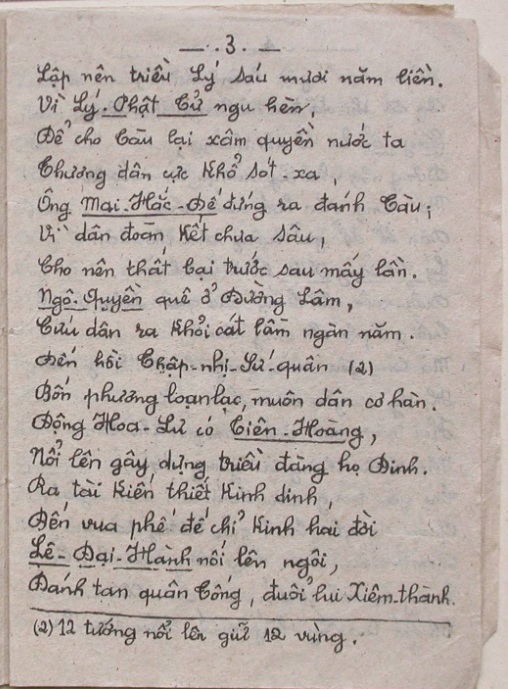 — . 3 . —
Lập nên triều Lý sáu mươi năm liền.
Vì Lý-Phật Tử ngu hèn,
Để cho Tàu lại xâm quyền nước ta
Thương dân cực khổ sót-xa,
Ông Mai-Hắc-Đế đứng ra đánh Tàu;
Vì dân đoàn kết chưa sâu,
Cho nên thất bại trước sau mấy lần.
Ngô-Quyền quê ở Đường Lâm,
Cứu dân ra khỏi cát lầm ngàn năm.
Đến hồi Thập-nhị-Sứ-quân (2)
Bốn phương loạn lạc, muôn dân cơ hàn.
Động Hoa-Lư có Tiên-Hoàng,
Nổi lên gây dựng triều đàng họ Đinh.
Ra tài kiến thiết kinh dinh,
Đến vua phế đế chỉ kinh hai đời
Lê-Đại-Hành nối lên ngôi,
Đánh tan quân Tống, đuổi lui Xiêm-thành.
(2) 12 tướng nổi lên giữ 12 vùng.